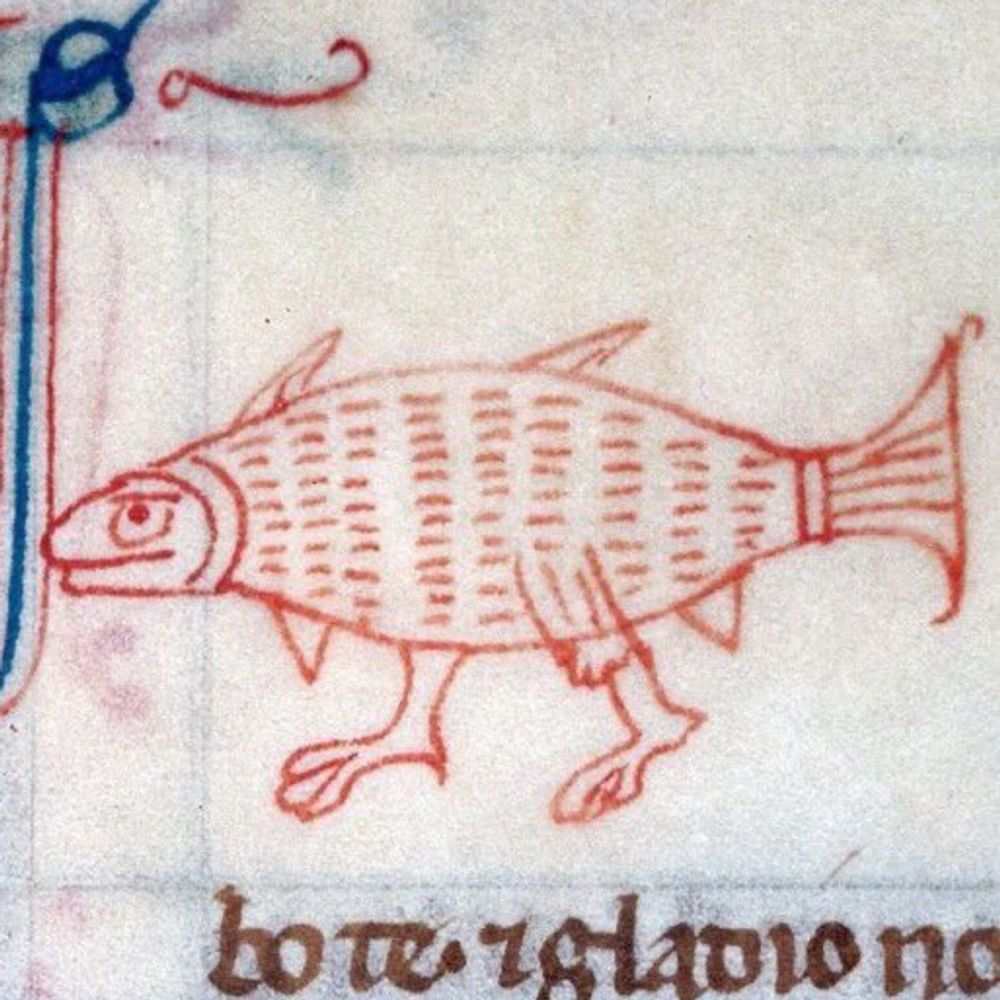 bo te. ⁊ gladio no